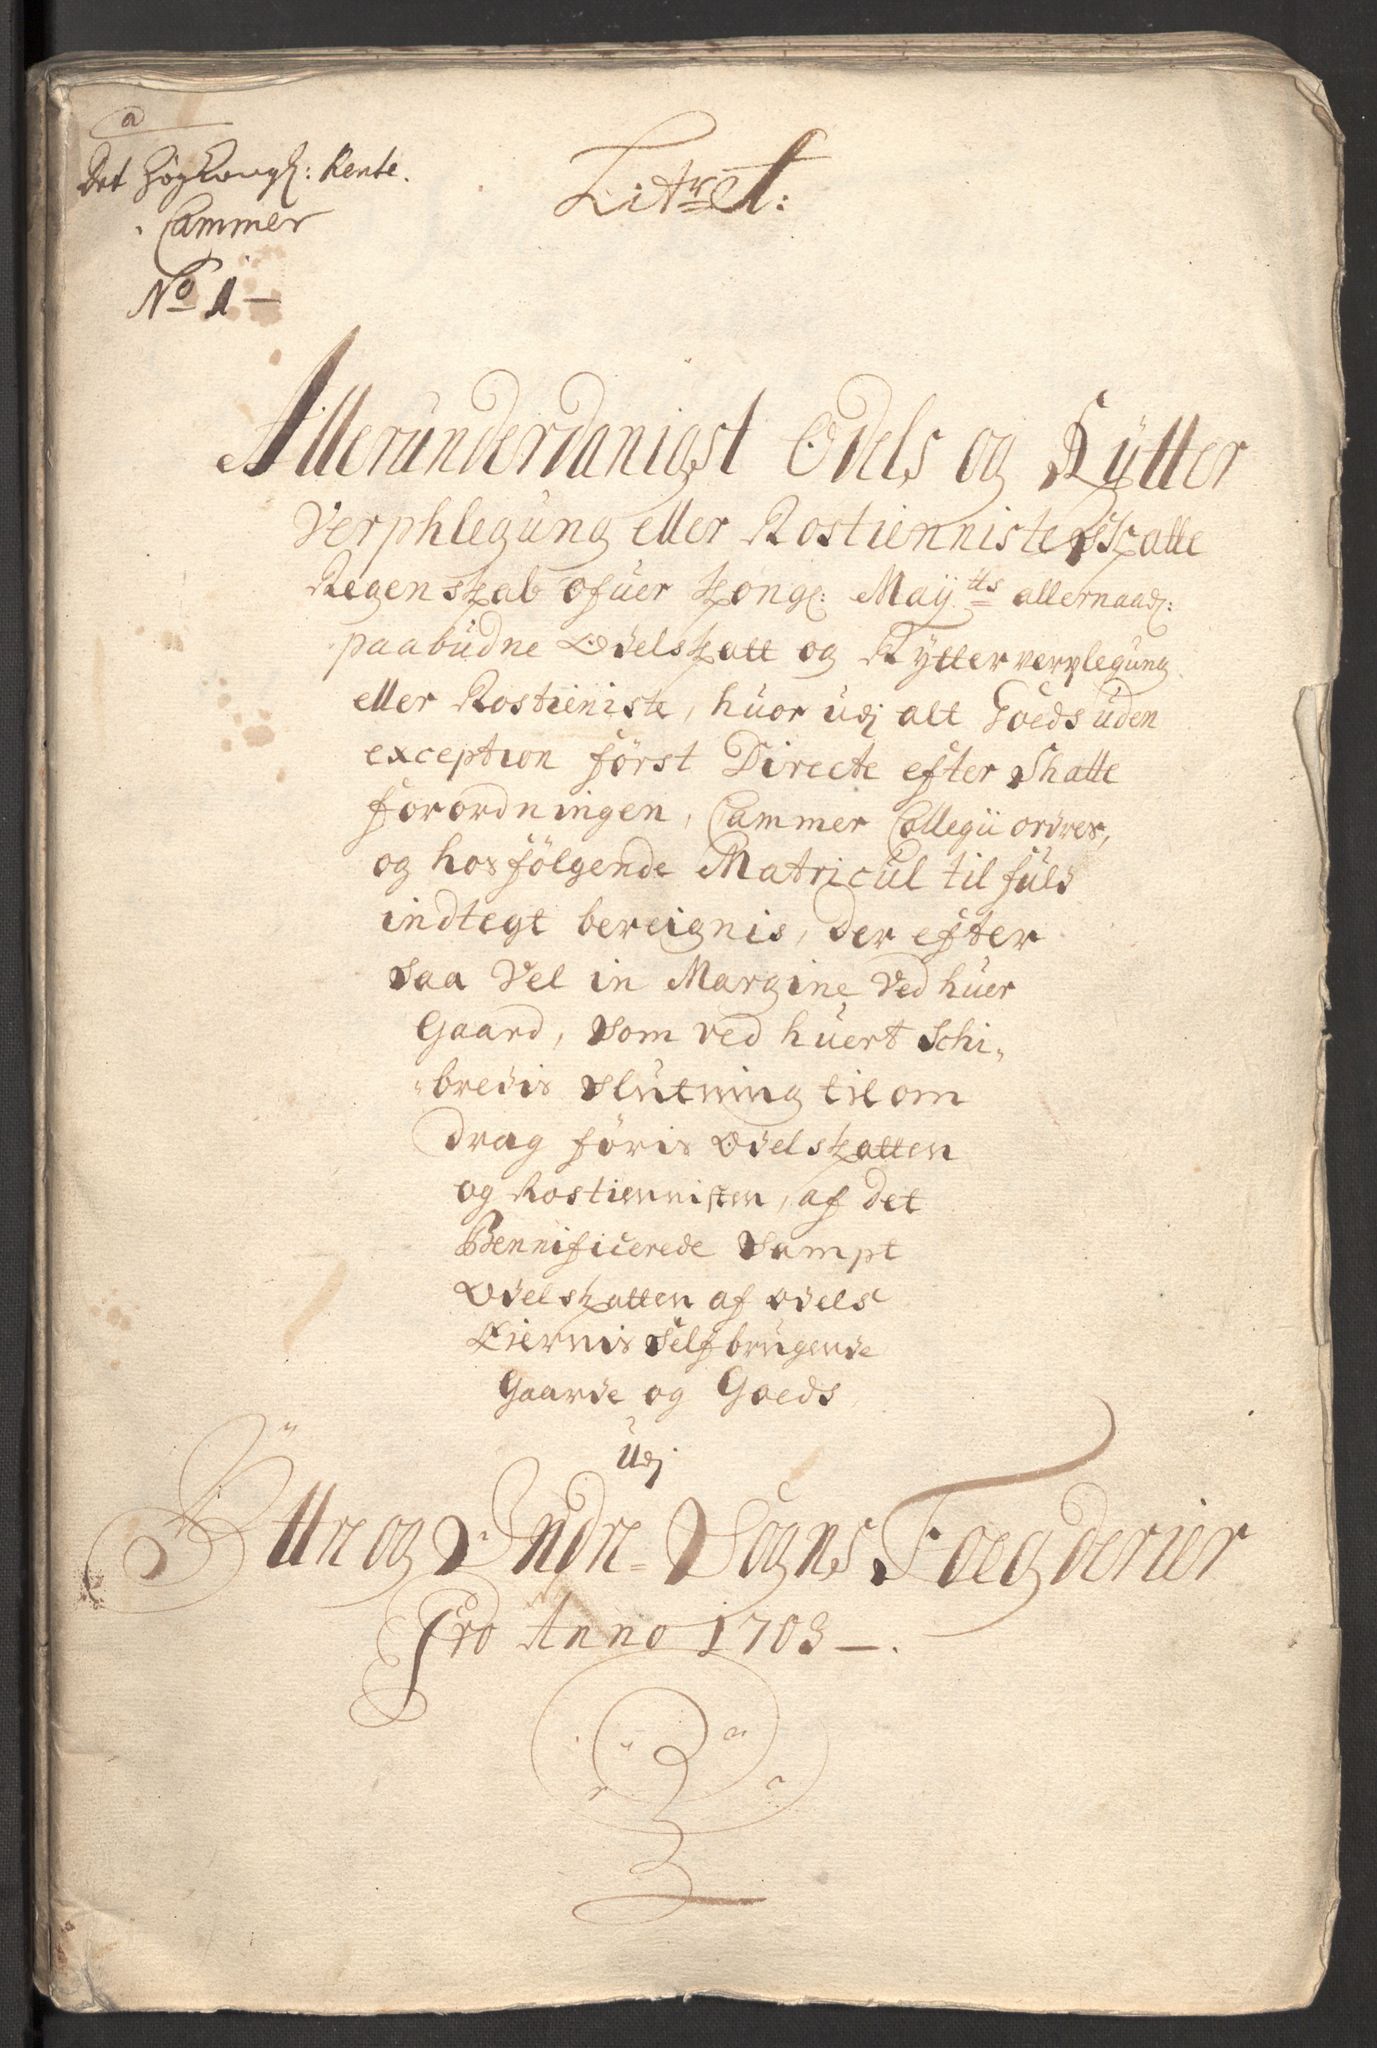 a
Det Høykongl: Rente.
Cammer
No 1 —
Litr A:
Allerunderdanigst Odels og Rÿtter
Verphlegung eller Rostienniste Skatte
Regenskab ofuer Kongl: Maÿtts allernaad:
paabudne Odelskatt og Rÿtterverplegung
eller Rostieniste, huor udj alt Goeds uden
exception först Directe efter Skatte
forordningen, Cammer Collegii ordres,
og hosfölgende Matricul til fuld
indtegt bereignis, der efter
saa Vel in Margine Ved huer
Gaard, som ved huert Schi-
-bredis slutning til om
drag föris Odelskatten
og Rostiennisten, af det
Bennificerede sampt
Odelskatten af odels
Eiernis self brugende
Gaarde og Goeds
Udj
Ÿttre og Indre Sogns Foegderier
Pro Anno 1703 —.